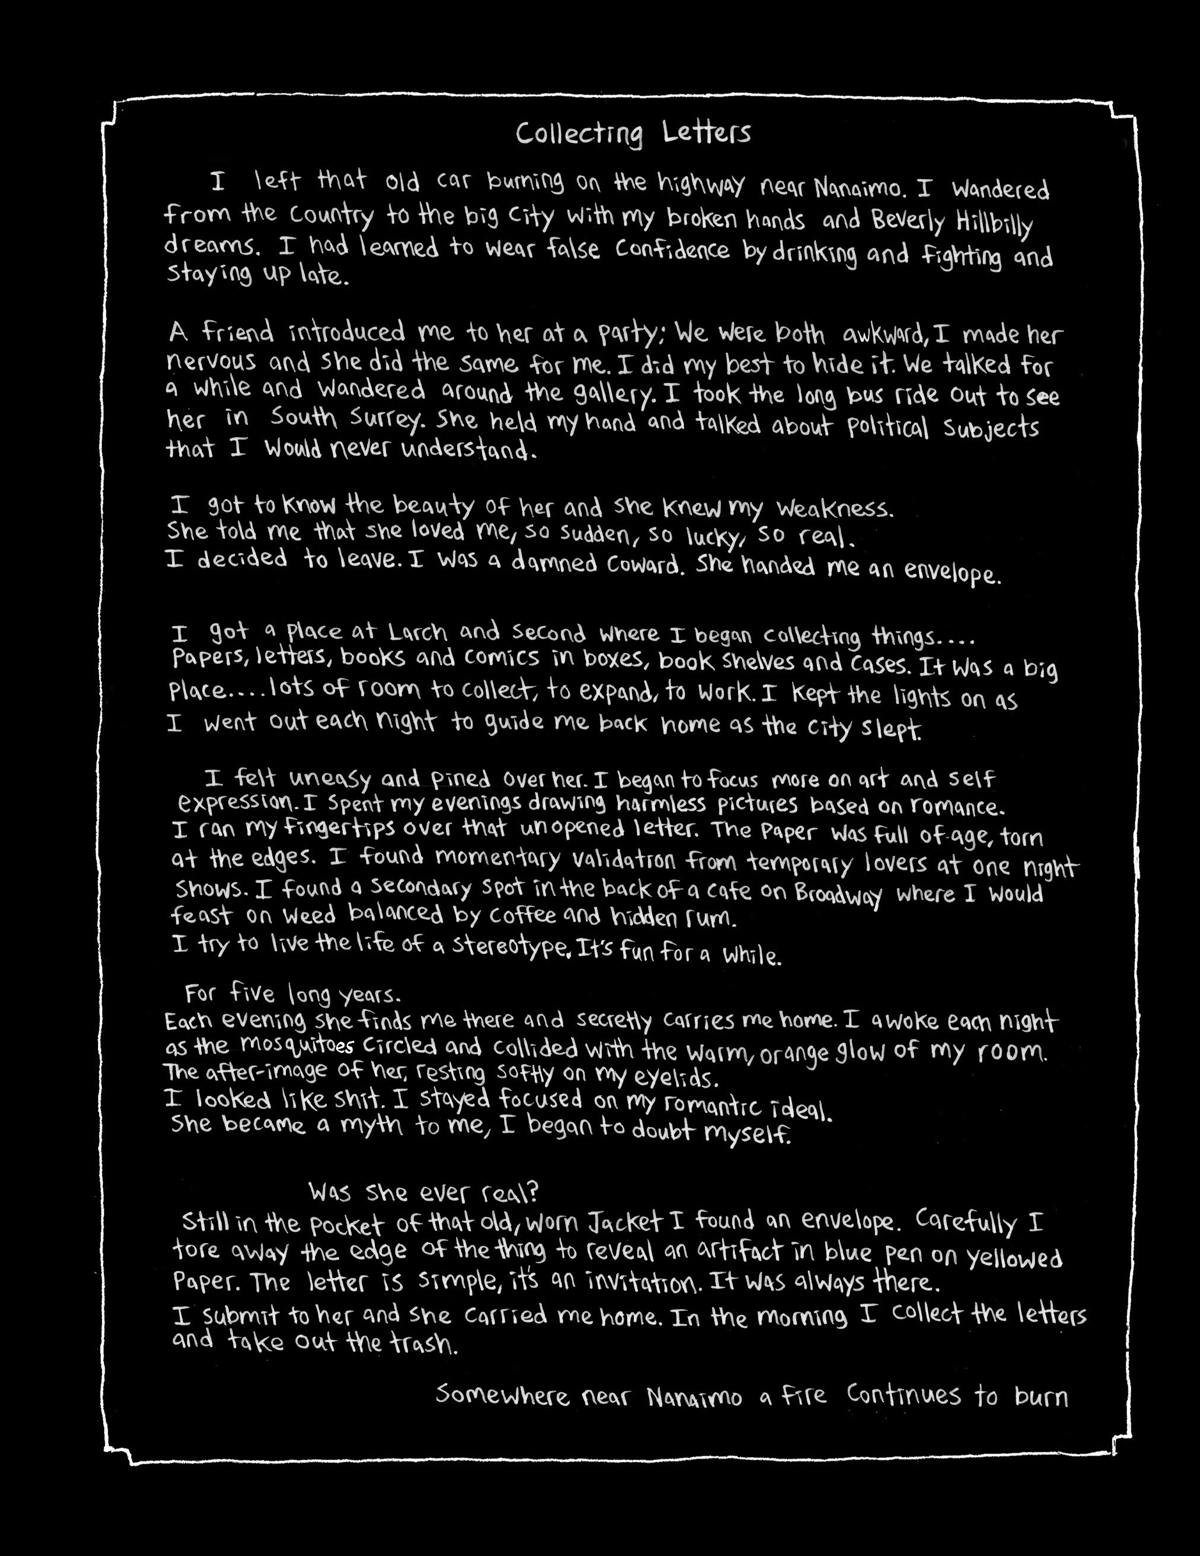 Collecting Letters
I left that old car burning on the highway near Nanaimo. I wandered
from the country to the big city with my broken hands and Beverly Hillbilly
dreams. I had learned to wear false confidence by drinking and fighting and
staying up late.
A friend introduced me to her at a party; we were both awkward, I made her
nervous and she did the same for me. I did my best to hide it. We talked for
a while and wandered around the gallery. I took the long bus ride out to see
her in South Surrey. She held my hand and talked about political subjects
that I would never understand.
I got to know the beauty of her and she knew my weakness.
She told me that she loved me, so sudden, so lucky, so real.
I decided to leave. I was a damned coward. She handed me an envelope.
I got a place at Larch and Second where I began collecting things....
Papers, letters, books and comics in boxes, book shelves and cases. It was a big
place....lots of room to collect, to expand, to work. I kept the lights on as
I went out each night to guide me back home as the city slept.
I felt uneasy and pined over her. I began to focus more on art and self
expression. I spent my evenings drawing harmless pictures based on romance.
I ran my fingertips over that unopened letter. The paper was full of age, torn
at the edges. I found momentary validation from temporary lovers at one night
shows. I found a secondary spot in the back of a cafe on Broadway where I would
feast on weed balanced by coffee and hidden rum.
I try to live the life of a stereotype. It's fun for a while.
For five long years.
Each evening she finds me there and secretly carries me home. I awoke each night
as the mosquitoes circled and collided with the warm, orange glow of my room.
The after-image of her, resting softly on my eyelids.
I looked like shit. I stayed focused on my romantic ideal.
She became a myth to me, I began to doubt myself.
Was she ever real?
Still in the pocket of that old, worn jacket I found an envelope. Carefully I
tore away the edge of the thing to reveal an artifact in blue pen on yellowed
paper. The letter is simple, it's an invitation. It was always there.
I submit to her and she carried me home. In the morning I collect the letters
and take out the trash.
Somewhere near Nanaimo a fire continues to burn